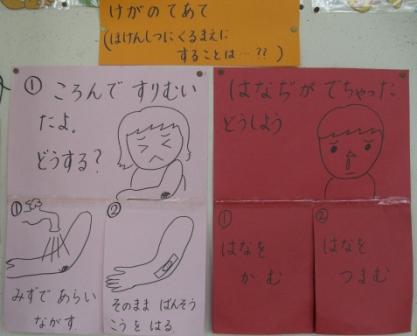 けがのてあて
(ほけんしつにくるまえに
することは…??)
① ころんで すりむい
たよ。
どうする?
①
みずで あらい
ながす。
②
そのまま ばんそう
こうを はる。
はなぢが でちゃった
どうしよう
①
はなを
かむ
②
はなを
つまむ